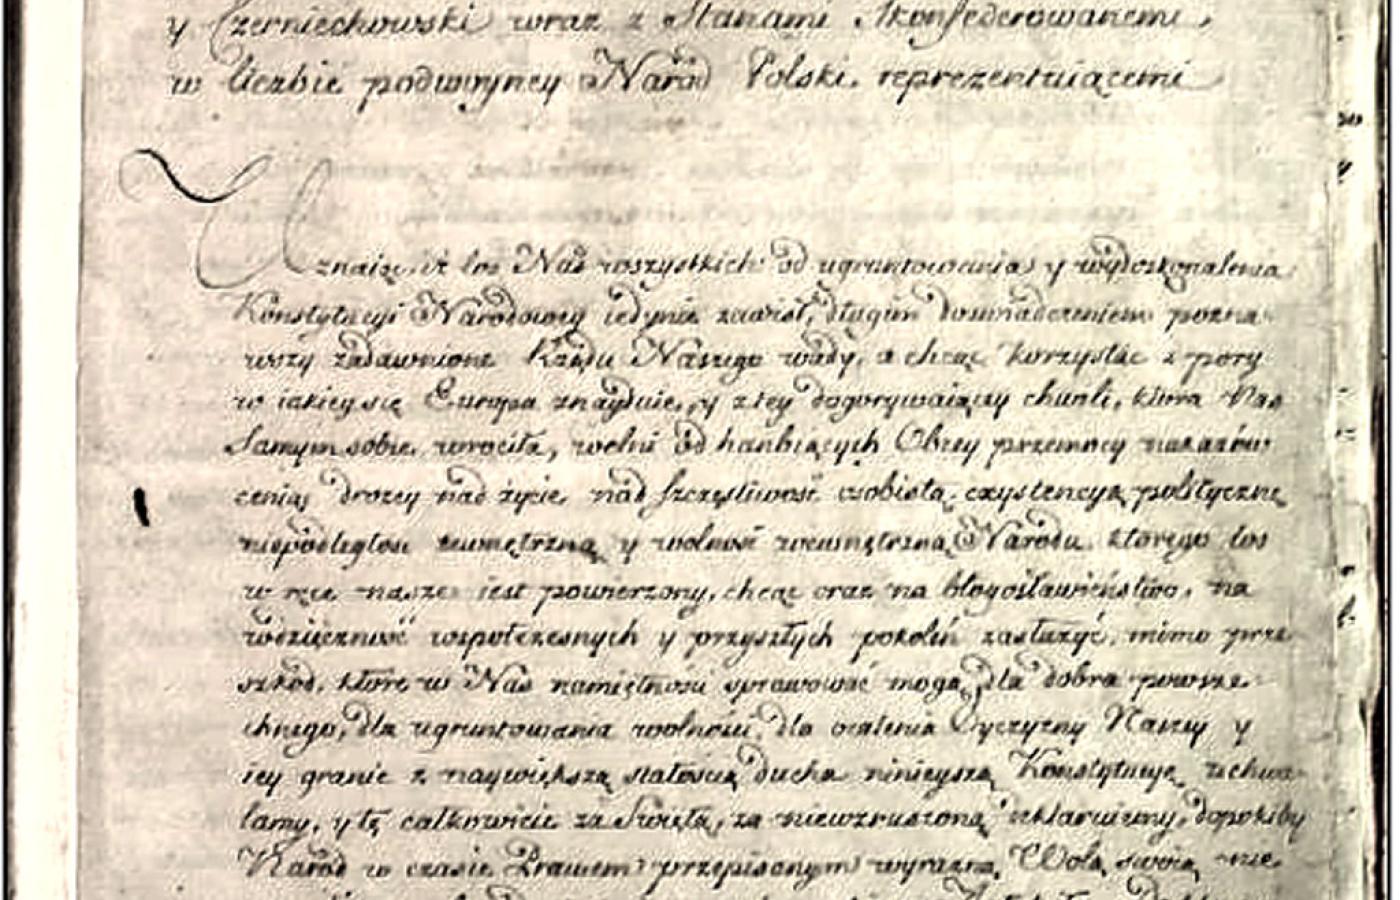 y Czerniechowski wraz z Stanami Skonfederowanemi,
w liczbie podwoyney Naród Polski reprezentuiącemi
Uznaiąc, iż los Nas wszystkich od ugruntowania y wydoskonalenia
Konstytucyi Narodowey iedynie zawisł, długim doswiadczeniem pozna-
wszy zadawnione Rządu Naszego wady, a chcąc korzystać z pory
w iakiey się Europa znayduie, y z tey dogorywaiącey chwili, która Nas
samym sobie wrociła, wolni od hanbiących Obcey przemocy nakazów
ceniąc drożey nad życie, nad szczęśliwość osobistą, exystencyą polityczną
niepodległość zewnętrzną y wolność wewnętrzną Narodu, ktorego los
w ręce nasze iest powierzony, chcąc oraz na błogosławieństwo, na
wdzięczność wspołczesnych y przyszłych pokoleń zasłużyć, mimo prze-
szkód, które w Nas namiętności sprawować mogą, dla dobra powsze-
chnego, dla ugruntowania wolności, dla ocalenia Oyczyzny Naszey y
iey granic z naywiększą stałością ducha ninieyszą Konstytucyę uchwa-
lamy, y tę całkowicie za Swiętą, za niewzruszoną deklaruiemy, dopokiby
Naród w czasie Prawem przepisanym wyrazną Wolą swoią nie